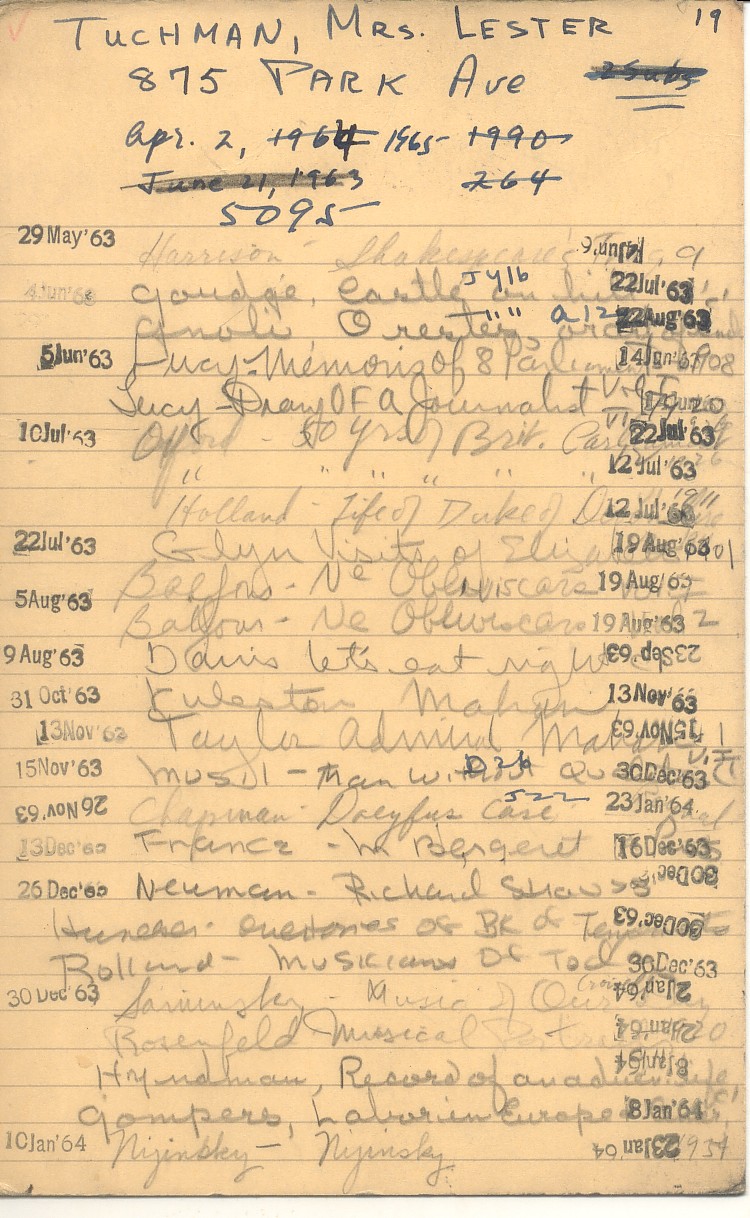 19
TUCHMAN, MRS. LESTER
875 PARK AVE 2 Subs
Apr. 2, 1964 1965 1990
June 21, 1963 264
5095
29 May '63 Harrison - Shakespeare's
4 Jun '63 Goudge, Castle on hill Jy 16 22 Jul '63
Oreste " " 22 Aug '63
5 Jun '63 Lucy - Memoris of 8 Parliaments 1908
Lucy - Diary Of A Journalist Vol I
10 Jul '63 50 yrs of Brit. Parliament 22 Jul '63
" " " " " " 12 Jul '63
Holland - Life of Duke of 1911 12 Jul '63
22 Jul '63 Glyn Visits of Elizabeth 19 Aug '63 1901
5 Aug '63 Balfour - Ne Obliviscaris Vol. I 19 Aug '63
Balfour - Ne Obliviscaris Vol 2 19 Aug '63
9 Aug '63 Davis Let's eat right 23 Sep. 63
31 Oct '63 Puleston Mahan 13 Nov '63
13 Nov '63 Taylor Admiral Mahan 15 Nov. 63
15 Nov '63 Musil - Man without Qual V. I 30 Dec '63
26 Nov. 63 Chapman - Dreyfus Case 522 23 Jan '64
13 Dec '63 France - M Bergeret 16 Dec '63
26 Dec '63 Neuman - Richard Strauss 30 Dec '63
Huneker - Overtones 30 Dec. 63
Rolland - Musicians Of Today 30 Dec '63
30 Dec '63 Saminsky - Music of Our Day 2 Jan '64
Rosenfeld Musical Portraits 1920 2 Jan '64
Hyndman, Record of an adven. life 8 Jan '64
Gompers, Labor in Europe 8 Jan '64
10 Jan '64 Nijinsky - Nijinsky 1934 23 Jan '64